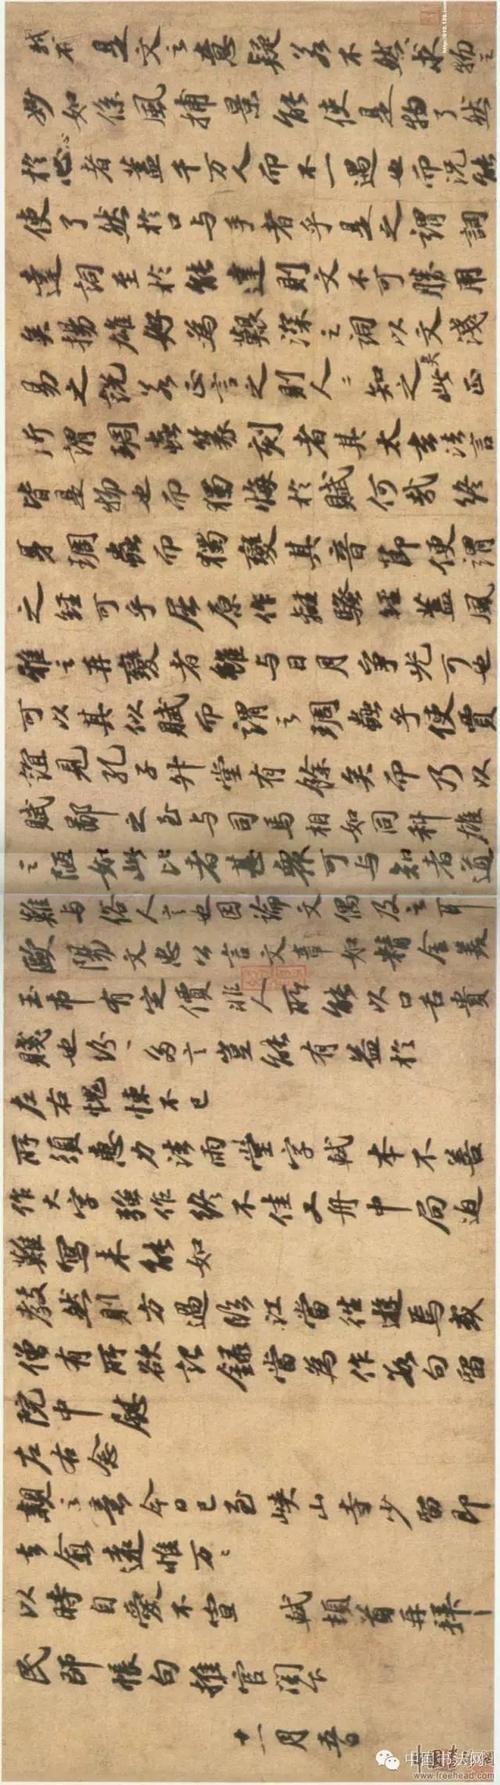 不是文之意疑若不然求物之
妙如係風捕景能使是物了然
於心者蓋千万人而不一遇也而況能
使了然於口与手者乎是之謂詞
達詞至於能達則文不可勝用
矣揚雄好為艱深之詞以文淺
易之說若正言之則人〻知之矣此正
所謂琱蟲篆刻者其太玄法言
皆是物也而獨悔於賦何哉終
身琱蟲而獨變其音節便謂
之經可乎屈原作離騷經蓋風
雅之再變者雖与日月爭光可也
可以其似賦而謂之琱蟲乎使賈
誼見孔子升堂有餘矣而乃以
賦鄙之至与司馬相如同科雄
之陋如此比者甚衆可与知者道
難与俗人言也因論文偶及之耳
歐陽文忠公言文章如精金美
玉市有定價非人所能以口舌貴
賤也紛〻多言豈能有益於
左右愧悚不已
所須惠力法雨堂字軾本不善
作大字強作終不佳又舟中局迫
難寫未能如
教然則方過臨江當往遊焉或
僧有所欲記錄當為作數句留
院中慰
左右念
親之意今日已至峽山寺少留即
去愈遠惟万〻
以時自愛不宣 軾頓首再拜
民師帳句推官閣下
十一月五日
中国书法网
www.freehead.com